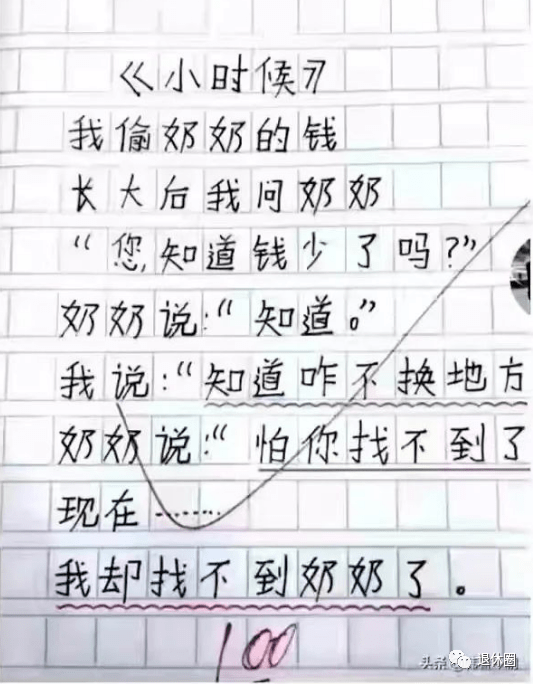 《小时候》
我偷奶奶的钱
长大后我问奶奶
“您知道钱少了吗?”
奶奶说:“知道。”
我说:“知道咋不换地方
奶奶说:“怕你找不到了
现在……
我却找不到奶奶了。
100
头条
退休圈